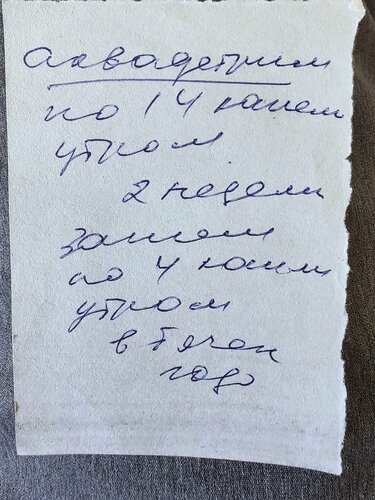 аквадетрим
по 14 капель
утром
2 недели
затем
по 4 капли
утром
в течен
года